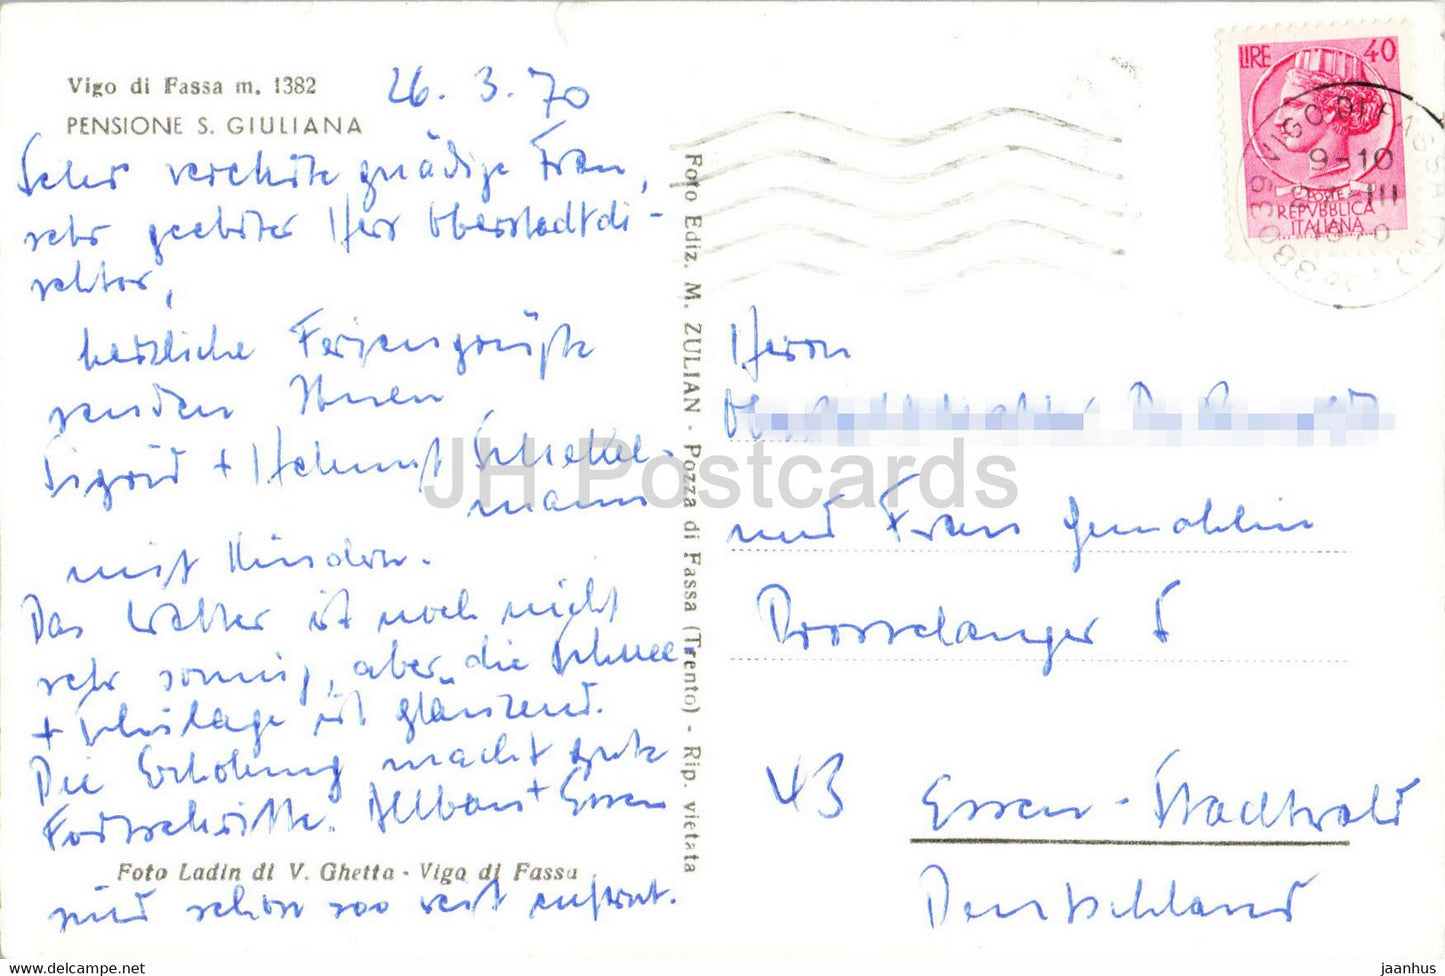 Vigo di Fassa m. 1382
PENSIONE S. GIULIANA
26. 3. 70
Sehr verehrte gnädige Frau,
sehr geehrter Herr Oberstadtdi-
rektor,
herzliche Feriengrüße
senden Ihnen
Sigrid + Helmut
mann
mit Kindern.
Das Wetter ist noch nicht
sehr sonnig, aber die Schnee
+ Skilage ist glänzend.
Die Erholung macht gute
Fortschritte. Altbau + Essen
Foto Ladin di V. Ghetta - Vigo di Fassa
sind schon soo weit entfernt.
Foto Ediz. M. ZULIAN - Pozza di Fassa (Trento) - Rip. vietata
LIRE 40
POSTE
REPVBBLICA
ITALIANA
VIGO DI FASSA
9-10
III
Herrn
und Frau Gemahlin
Drosselanger 5
43 Essen-Stadtwald
Deutschland
JH Postcards
https://www.jhpostcard.com
jaanhus